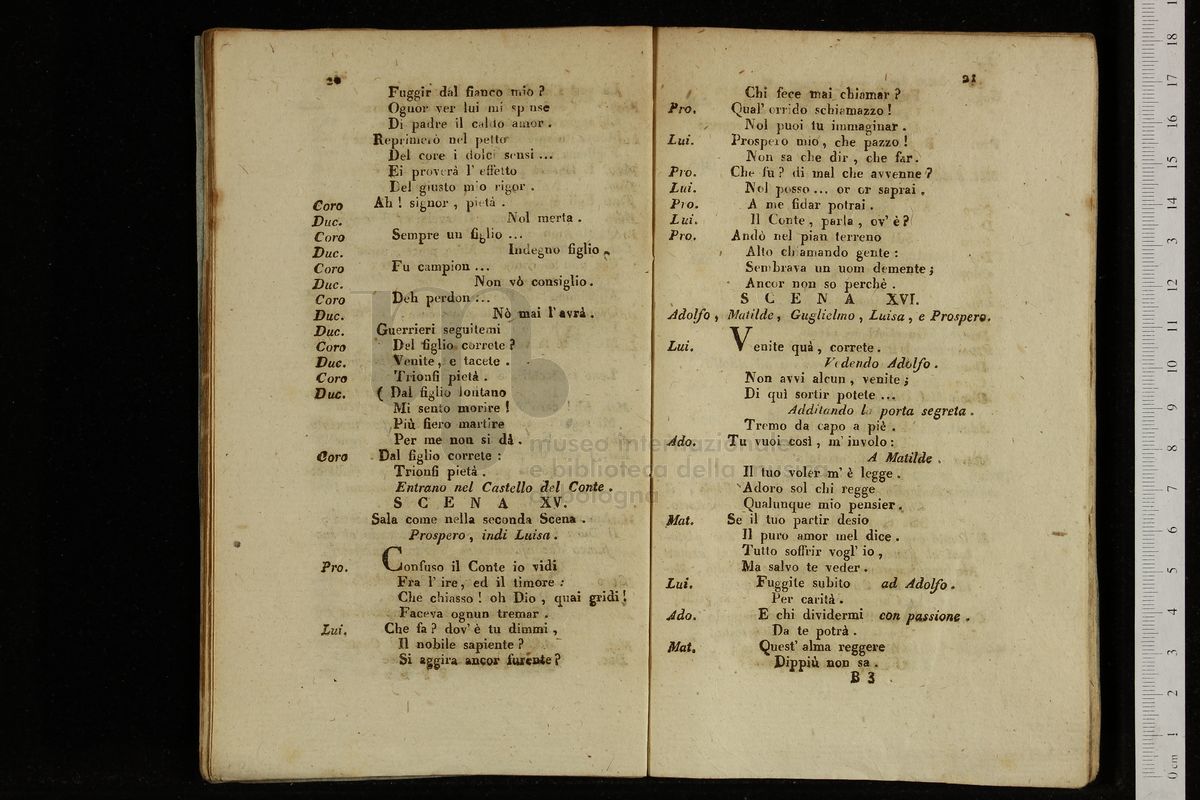 20
Fuggir dal fianco mio ?
Ognor ver lui mi sp nse
Di padre il caldo amor .
Reprimerò nel petto
Del core i dolci sensi ...
Ei proverà l' effetto
Del giusto mio rigor .
Coro Ah ! signor , pietà .
Duc. Nol merta .
Coro Sempre un figlio ...
Duc. Indegno figlio .
Coro Fu campion ...
Duc. Non vò consiglio .
Coro Deh perdon ...
Duc. Nò mai l' avrà .
Duc. Guerrieri seguitemi
Coro Del figlio correte ?
Duc. Venite , e tacete .
Coro Trionfi pietà .
Duc. ( Dal figlio lontano
Mi sento morire !
Più fiero martire
Per me non si dà .
Coro Dal figlio correte :
Trionfi pietà .
Entrano nel Castello del Conte .
S C E N A XV.
Sala come nella seconda Scena .
Prospero , indi Luisa .
Pro. Confuso il Conte io vidi
Fra l' ire , ed il timore :
Che chiasso ! oh Dio , quai gridi !
Faceva ognun tremar .
Lui. Che fa ? dov' è tu dimmi ,
Il nobile sapiente ?
Si aggira ancor furente ?
21
Chi fece mai chiamar ?
Pro. Qual' orrido schiamazzo !
Nol puoi tu immaginar .
Lui. Prospero mio , che pazzo !
Non sa che dir , che far .
Pro. Che fù ? di mal che avvenne ?
Lui. Nol posso ... or or saprai .
Pro. A me fidar potrai .
Lui. Il Conte , parla , ov' è ?
Pro. Andò nel pian terreno
Alto chiamando gente :
Sembrava un uom demente ;
Ancor non so perchè .
S C E N A XVI.
Adolfo , Matilde , Guglielmo , Luisa , e Prospero .
Lui. Venite quà , correte .
Vedendo Adolfo .
Non avvi alcun , venite ;
Di quì sortir potete ...
Additando la porta segreta .
Tremo da capo a piè .
Ado. Tu vuoi così , m' involo :
A Matilde .
Il tuo voler m' è legge .
Adoro sol chi regge
Qualunque mio pensier .
Mat. Se il tuo partir desio
Il puro amor mel dice .
Tutto soffrir vogl' io ,
Ma salvo te veder .
Lui. Fuggite subito ad Adolfo .
Per carità .
Ado. E chi dividermi con passione .
Da te potrà .
Mat. Quest' alma reggere
Dippiù non sa .
B 3
museo internazionale
e biblioteca della musica
di bologna